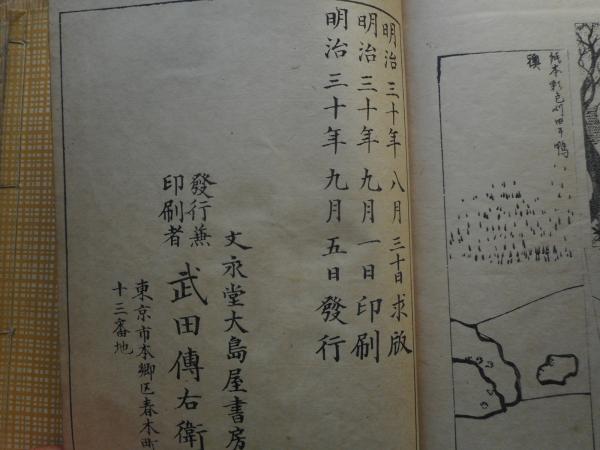 紙本彩色刈田ニ鴨
襖
明治三十年八月三十日求版
明治三十年九月一日印刷
明治三十年九月五日發行
文永堂大島屋書房
發行兼
印刷者
武田傳右衛
東京市本郷区春木町
十三番地